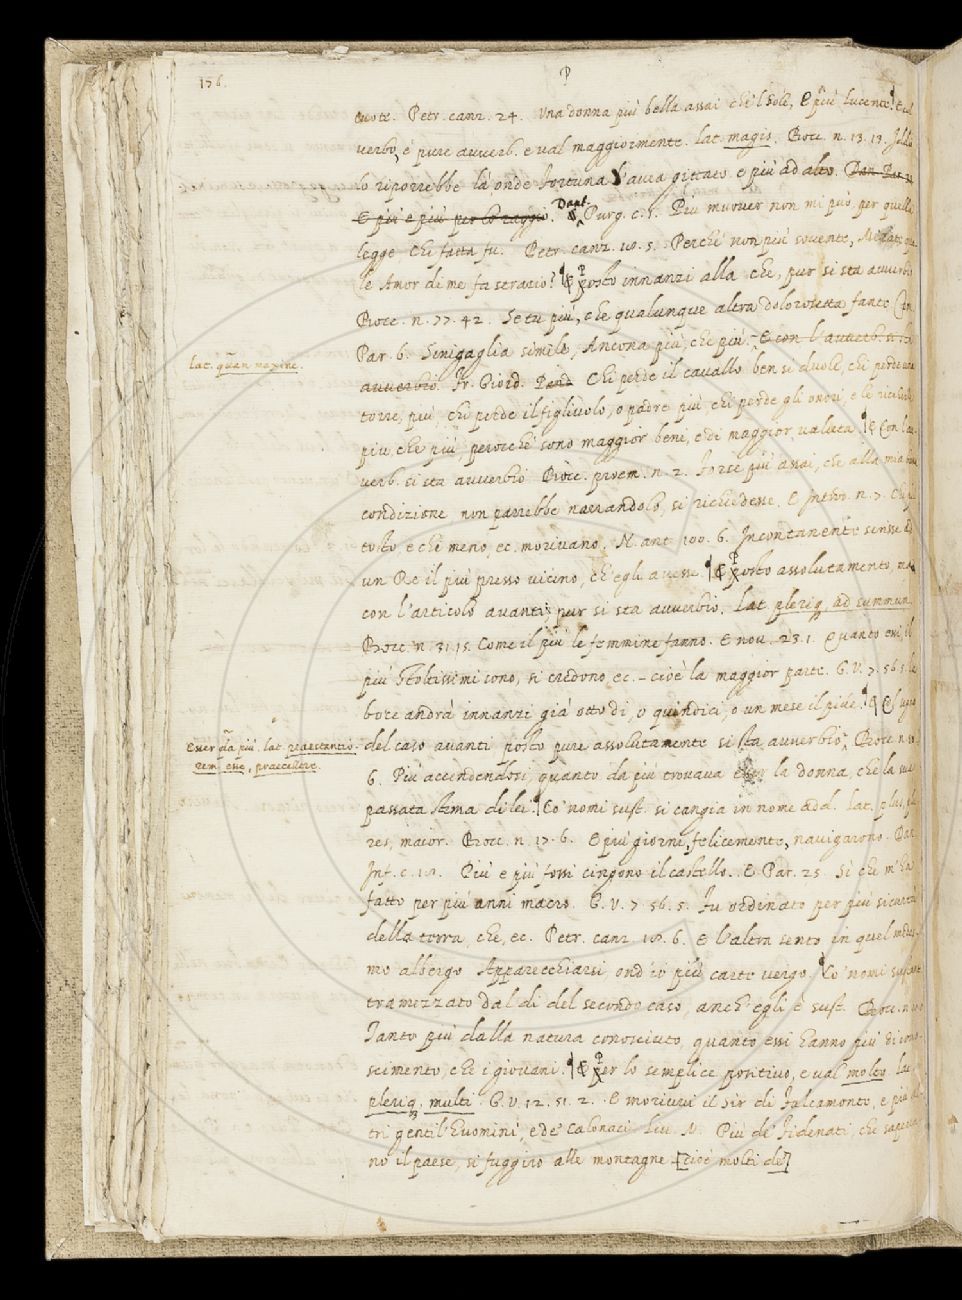 176.
P
tuote. Petr. canz. 24. Una donna più bella assai che 'l Sole, E più lucente. E col
verbo, è pure avverb. e val maggiormente. Lat. magis. Bocc. n. 13. 13. Iddio
lo riporrebbe là, onde fortuna l'avea gittato, e più ad alto. Dan. Par.
E più e più per lo raggio. Dant. Purg. c. 1. Più muover non mi può, per quella
legge Che fatta fu. Petr. canz. 5. Perchè non più sovente, Mirate
le Amor di me fa strazio? E Posto innanzi alla che, pur si sta avverbio
Bocc. n. 77. 42. Se tu più, che qualunque altra dolorosetta fante
Par. 6. Sinigaglia simile, Ancona più, che più. E con l'avverb. si
lat. quam maxime.
avverbio. Fr. Giord. Pred. Chi perde il cavallo ben si duole, chi perde una
torre, più, chi perde il figliuolo, o padre più, chi perde gli onori, e le ricchezze
più, che più, perocchè sono maggior beni, e di maggior valuta. E Con l'av-
verb. si sta avverbio Bocc. proem. n. 2. Forse più assai, che alla mia bassa
condizione non parrebbe narrandolo, si richiedesse. E Introd. n. 7. Chi più
tosto, e chi meno, ec. morivano. N. ant. 100. 6. Incontanente scrisse ad
un Re il più presso vicino, ch'egli avesse. E Posto assolutamente, ma
con l'articolo avanti, pur si sta avverbio. Lat. pleriq, ad summum
Bocc. n. 31. 15. Come il più le femmine fanno. E nov. 23. 1. Quanto essi il
più stoltissimi sono, si credono, ec. - cioè la maggior parte. G. V. 7. 56. 5. la
boce andrà innanzi già otto dì, o quindici, o un mese il piue. E Col segno
Esser da più. lat. praestantio-
rem esse, praecellere.
del caso avanti posto pure assolutamente si sta avverbio, Bocc. n.
6. Più accendendosi, quanto da più trovava la donna, che la sua
passata stima di lei. Co' nomi sust. si cangia in nome add. Lat. plus, plu
res, maior. Bocc. n. 17. 6. E più giorni felicemente navigarono. Dan.
Inf. c. Più e più fossi cingono il castello. E Par. 25. Sì che m'ha
fatto per più anni macro. G. V. 7. 56. 5. Fu ordinato per più sicurtà
della terra, che, ec. Petr. canz. 6. E l'altra sento in quel medes-
mo albergo Apparecchiarsi ond'io più carte vergo. Co' nomi sust.
tramezzato dal di del secondo caso, anch'egli è sust. Bocc. n.
Tanto più dalla natura conosciuto, quanto essi hanno più di cono-
scimento, che i giovani. E Per lo semplice positivo, e val molto. Lat.
pleriq, multi. G. V. 12. 51. 2. E morivvi il Sir di Falcamonte, e più al-
tri gentil'huomini, e de' Calonaci. Liv. M. Più de' Fidenati, che sapea-
no il paese, si fuggiro alle montagne [cioè molti de']